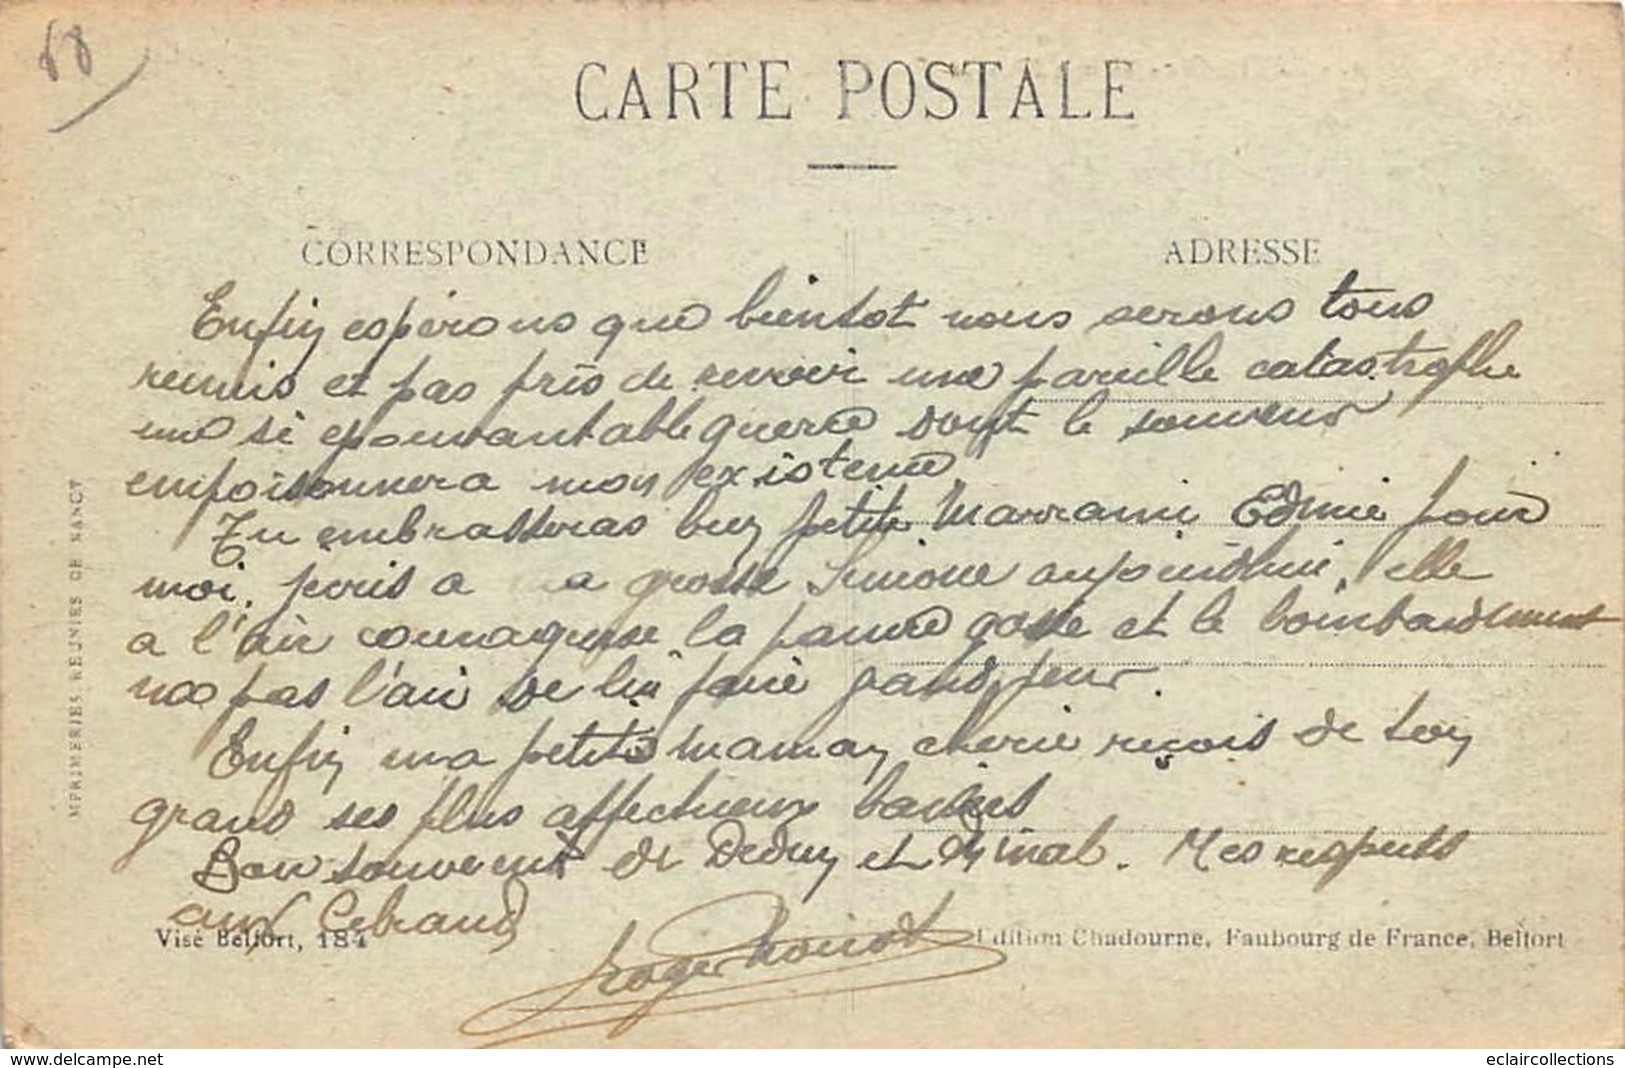 68
CARTE POSTALE
CORRESPONDANCE
ADRESSE
Enfin espérons que bientot nous serons tous
reunis et pas près de revoir une pareille catastrophe
une si epouvantable guerre dont le souvenir
empoisonnera mon existence
Tu embrasseras bien petite Marraine Edmée pour
moi, j'ecris a la grosse Simone aujourd'hui, elle
a l'air courageuse la pauvre gosse et le bombardement
ne pas l'air de lui faire grand peur.
Enfin ma petite maman cherie reçois de ton
grand ses plus affectueux baisers
Bon souvenir de Dedun et Mes respects
aux Cebrand
Roger
IMPRIMERIES REUNIES DE NANCY
Visé Belfort, 184
Edition Chadourne, Faubourg de France, Belfort
www.delcampe.net
eclaircollections